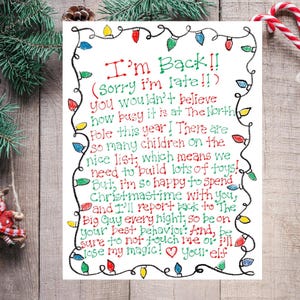 I'm Back!!
(sorry i'm late!!)
you wouldn't believe
how busy it is at The North
Pole this year! There are
so many children on the
nice list, which means we
need to build lots of toys!
But, I'm so happy to spend
Christmastime with you,
and I'll report back to The
Big Guy every night, so be on
your best behavior! And, be
sure to not touch me or I'll
lose my magic! ♡ your elf